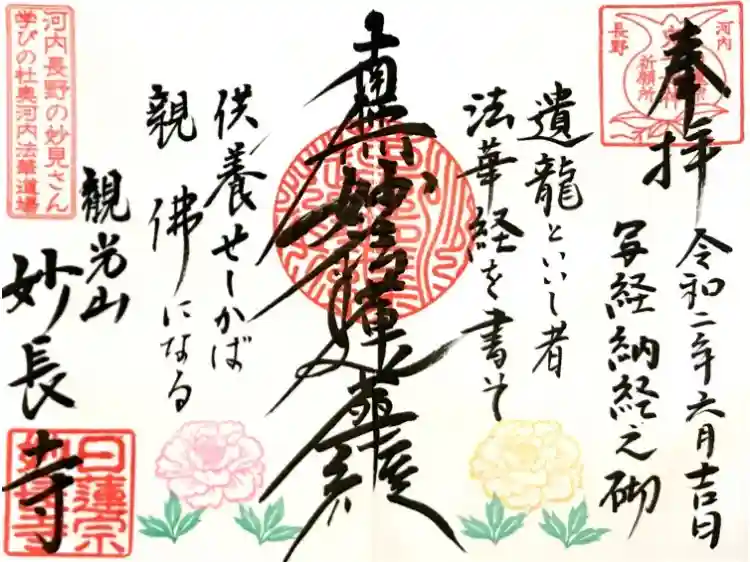 奉拝
令和二年六月吉日
写経納経之砌
河内
長野
祈願所
遺龍といいし者
法華経を書き
南無妙法蓮華経
供養せしかば
親 佛になる
観光山
妙長寺
河内長野の妙見さん
学びの杜奥河内法華道場
日蓮宗
妙長寺